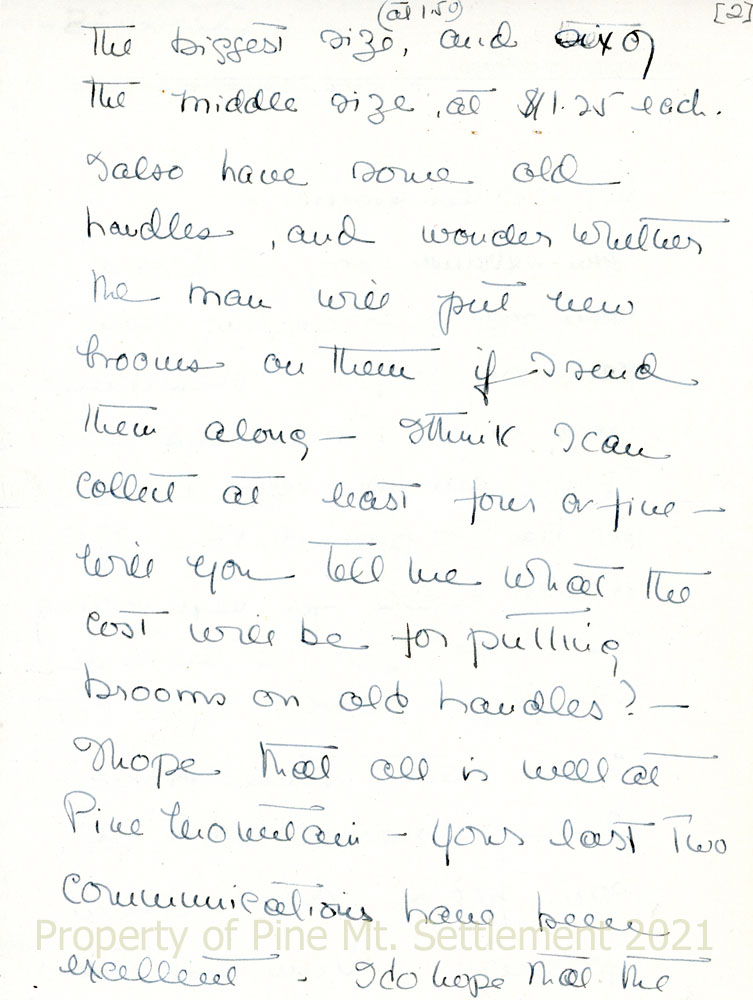 (at 1.50) [2]
The biggest size, and six of
the middle size, at $1.25 each.
I also have some old
handles, and wonder whether
the man will put new
brooms on them if I send
them along — I think I can
collect at least four or five —
will you tell me what the
cost will be for putting
brooms on old handles? —
I hope that all is well at
Pine Mountain — your last two
communications have been
Property of Pine Mt. Settlement 2021
excellent - I do hope that the